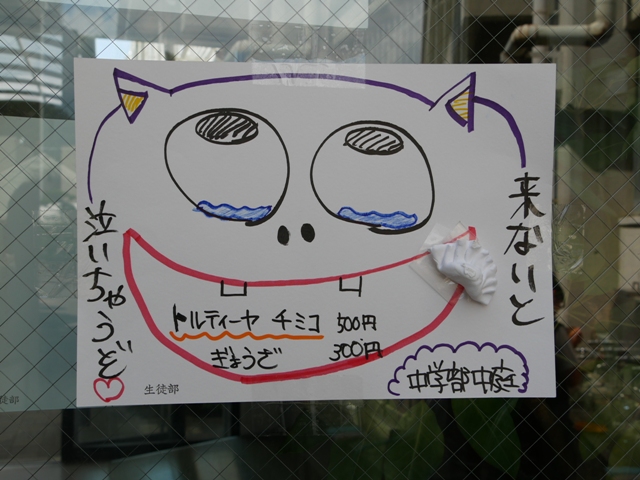 来ないと
泣いちゃうぞ
トルティーヤ チミコ 500円
ぎょうざ 300円
中学部中庭
生徒部